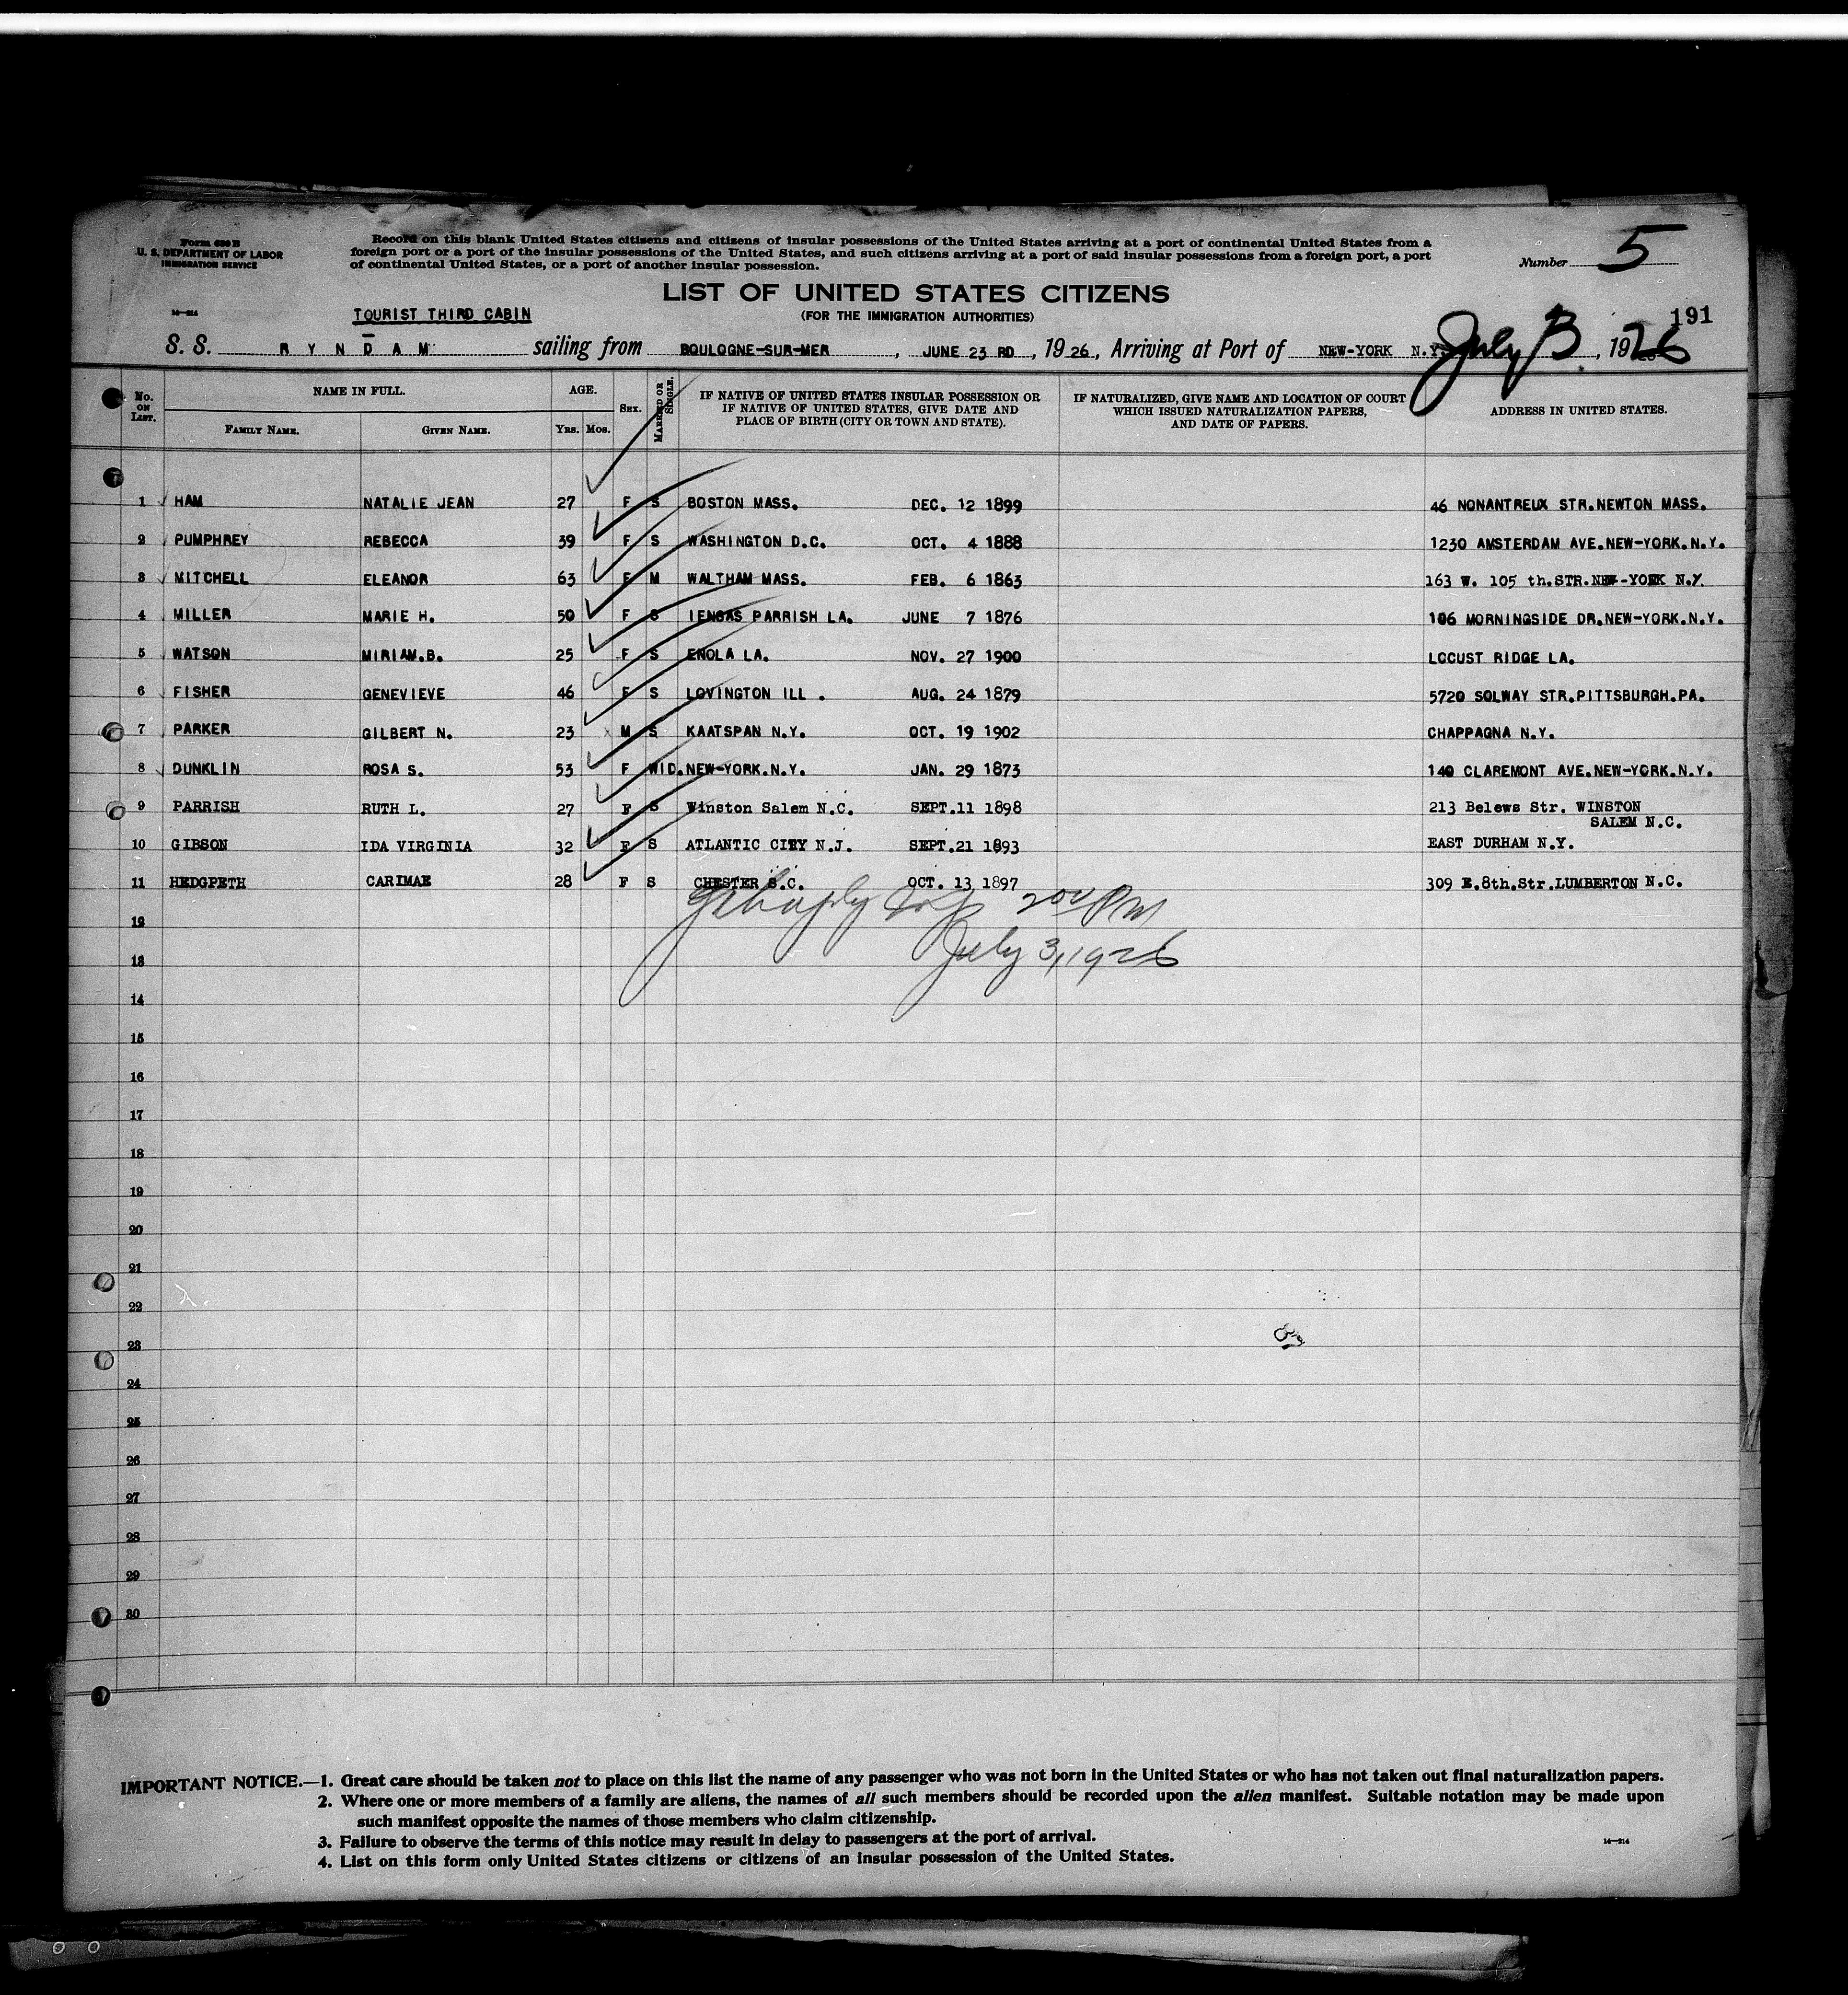 Form 630 B
U. S. DEPARTMENT OF LABOR
IMMIGRATION SERVICE
Record on this blank United States citizens and citizens of insular possessions of the United States arriving at a port of continental United States from a
foreign port or a port of the insular possessions of the United States, and such citizens arriving at a port of said insular possessions from a foreign port, a port
of continental United States, or a port of another insular possession.
Number 5
LIST OF UNITED STATES CITIZENS
(FOR THE IMMIGRATION AUTHORITIES)
14—214
TOURIST THIRD CABIN
191
S. S. R Y N D A M sailing from BOULOGNE-SUR-MER, JUNE 23 RD, 1926, Arriving at Port of NEW-YORK N.Y. July 3, 1926
No. ON LIST. NAME IN FULL. AGE. SEX. MARRIED OR SINGLE. IF NATIVE OF UNITED STATES INSULAR POSSESSION OR IF NATIVE OF UNITED STATES, GIVE DATE AND PLACE OF BIRTH (CITY OR TOWN AND STATE). IF NATURALIZED, GIVE NAME AND LOCATION OF COURT WHICH ISSUED NATURALIZATION PAPERS, AND DATE OF PAPERS. ADDRESS IN UNITED STATES.
FAMILY NAME. GIVEN NAME. YRS. MOS.
1 HAM NATALIE JEAN 27 F S BOSTON MASS. DEC. 12 1899 46 NONANTREUX STR.NEWTON MASS.
2 PUMPHREY REBECCA 39 F S WASHINGTON D.C. OCT. 4 1888 1230 AMSTERDAM AVE.NEW-YORK.N.Y.
3 MITCHELL ELEANOR 63 F M WALTHAM MASS. FEB. 6 1863 163 W. 105 th.STR.NEW-YORK N.Y.
4 MILLER MARIE H. 50 F S IENSAS PARRISH LA. JUNE 7 1876 106 MORNINGSIDE DR.NEW-YORK.N.Y.
5 WATSON MIRIAM.B. 25 F S ENOLA LA. NOV. 27 1900 LOCUST RIDGE LA.
6 FISHER GENEVIEVE 46 F S LOVINGTON ILL . AUG. 24 1879 5720 SOLWAY STR.PITTSBURGH.PA.
7 PARKER GILBERT N. 23 M S KAATSPAN N.Y. OCT. 19 1902 CHAPPAGNA N.Y.
8 DUNKLIN ROSA S. 53 F WID. NEW-YORK.N.Y. JAN. 29 1873 140 CLAREMONT AVE.NEW-YORK.N.Y.
9 PARRISH RUTH L. 27 F S Winston Salem N.C. SEPT.11 1898 213 Belews Str. WINSTON
SALEM N.C.
10 GIBSON IDA VIRGINIA 32 F S ATLANTIC CITY N.J. SEPT.21 1893 EAST DURHAM N.Y.
11 HEDGPETH CARIMAE 28 F S CHESTER S.C. OCT. 13 1897 309 E.8th.Str.LUMBERTON N.C.
200 PM
12
July 3, 1926
13
14
15
16
17
18
19
20
21
22
23
24
25
26
27
28
29
30
IMPORTANT NOTICE.—1. Great care should be taken not to place on this list the name of any passenger who was not born in the United States or who has not taken out final naturalization papers.
2. Where one or more members of a family are aliens, the names of all such members should be recorded upon the alien manifest. Suitable notation may be made upon
such manifest opposite the names of those members who claim citizenship.
3. Failure to observe the terms of this notice may result in delay to passengers at the port of arrival.
4. List on this form only United States citizens or citizens of an insular possession of the United States.
14—214